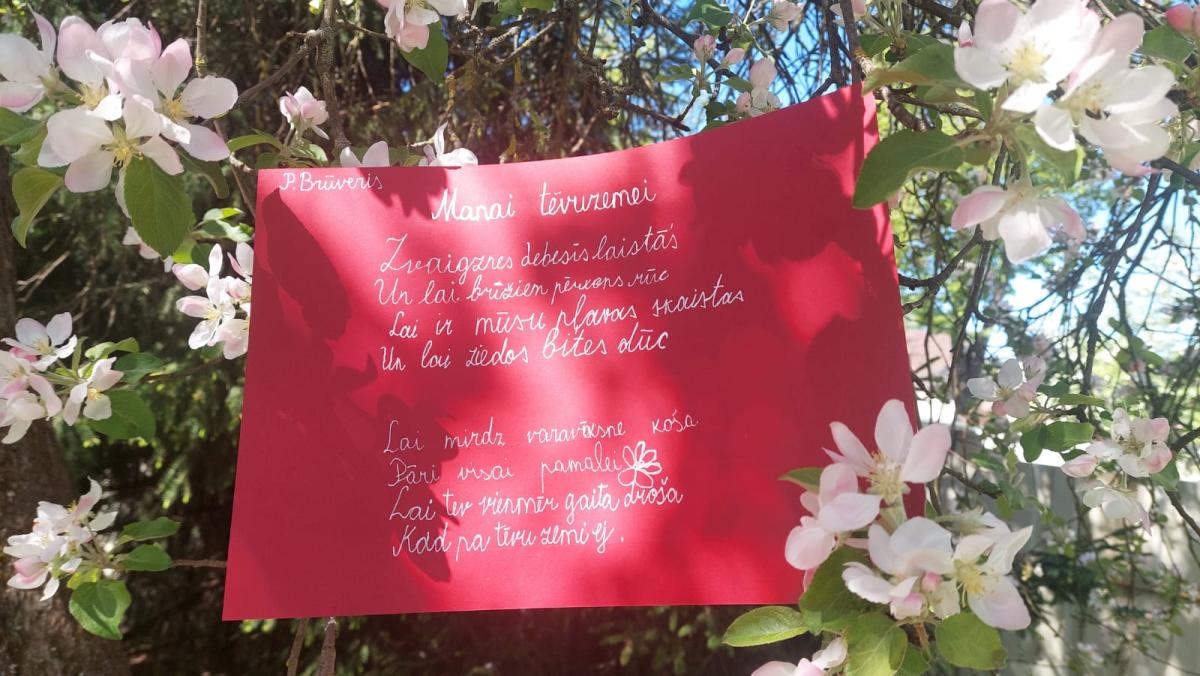 P. Brūveris
Manai tēvuzemei
Zvaigznes debesīs laistās
Un lai brīžiem pērkons rūc
Lai ir mūsu pļavas skaistas
Un lai ziedos bites dūc
Lai mirdz varavīksne koša
Pāri visai pamalei
Lai tev vienmēr gaita droša
Kad pa tēvu zemi ej.